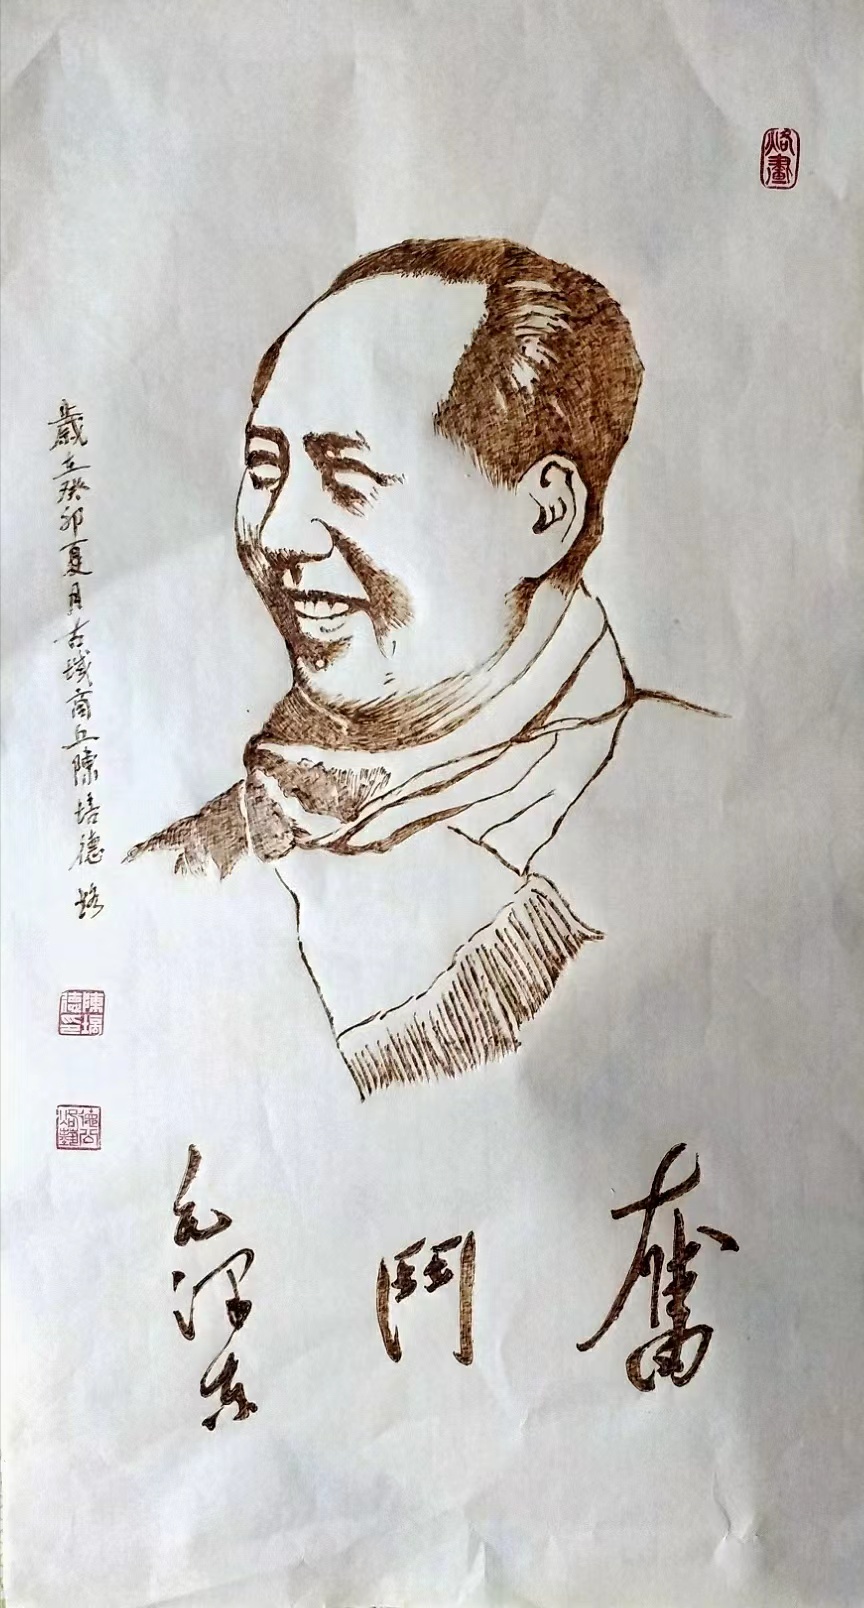 烙畫
奮鬥
毛泽东
歲在癸卯夏月古城商丘陳培德烙
陳培德印